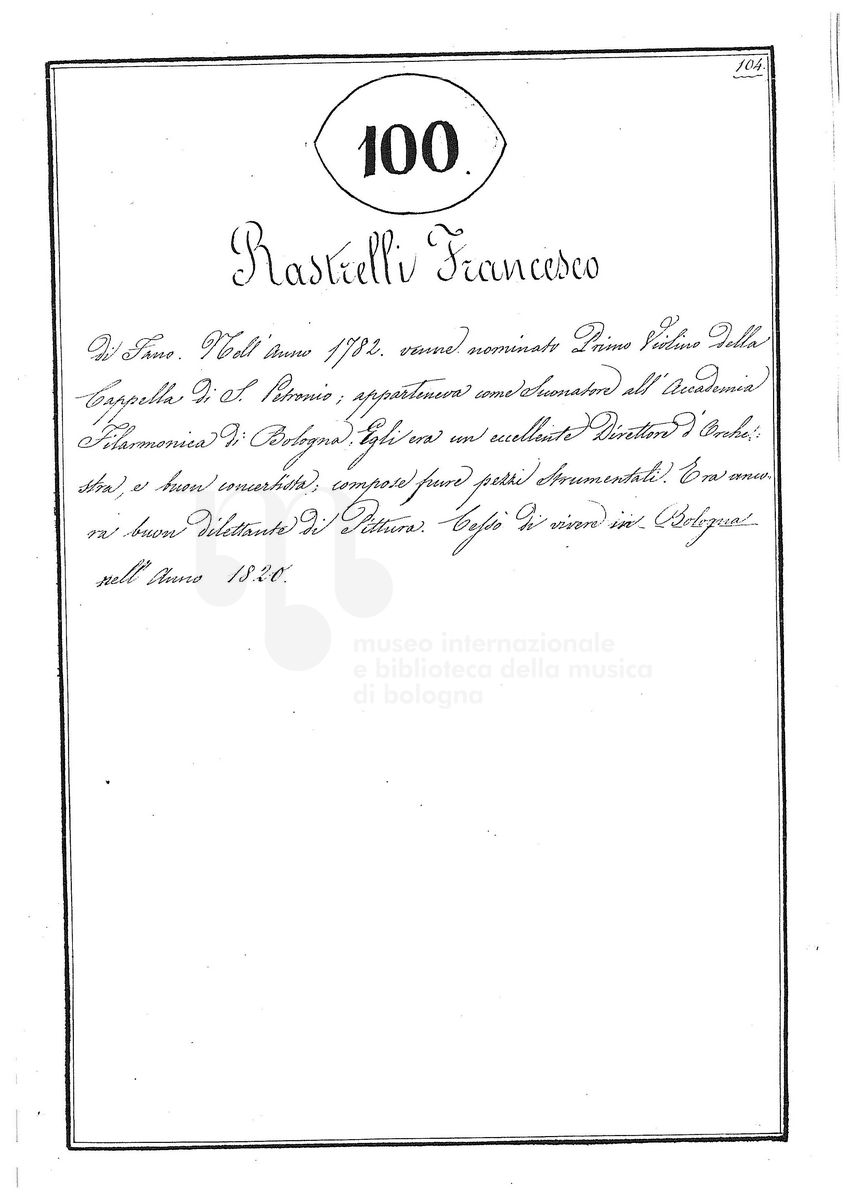 104.
100.
Rastrelli Francesco
di Fano. Nell'Anno 1782. venne nominato Primo Violino della
Cappella di S. Petronio; apparteneva come Suonatore all'Accademia
Filarmonica di Bologna. Egli era un eccellente Direttore d'Orche-
stra, e buon concertista; compose pure pezzi strumentali. Era anco-
ra buon dilettante di Pittura. Cessò di vivere in Bologna
nell'Anno 1820.
museo internazionale
e biblioteca della musica
di bologna